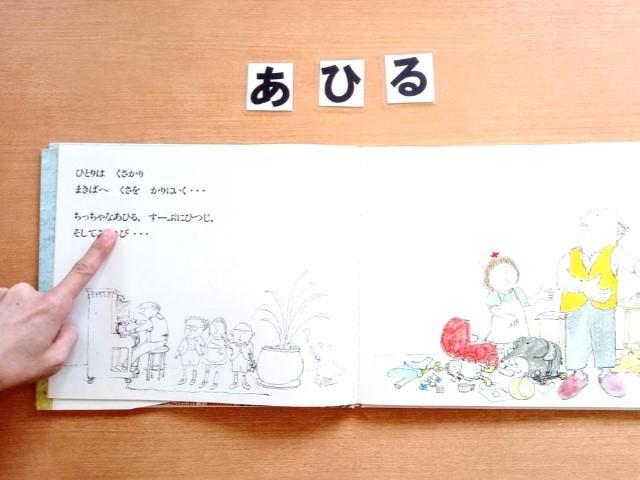 あひる
ひとりは くさかり
まきばへ くさを かりにいく・・・
ちっちゃなあひる, すーぷにひつじ,
そして び・・・